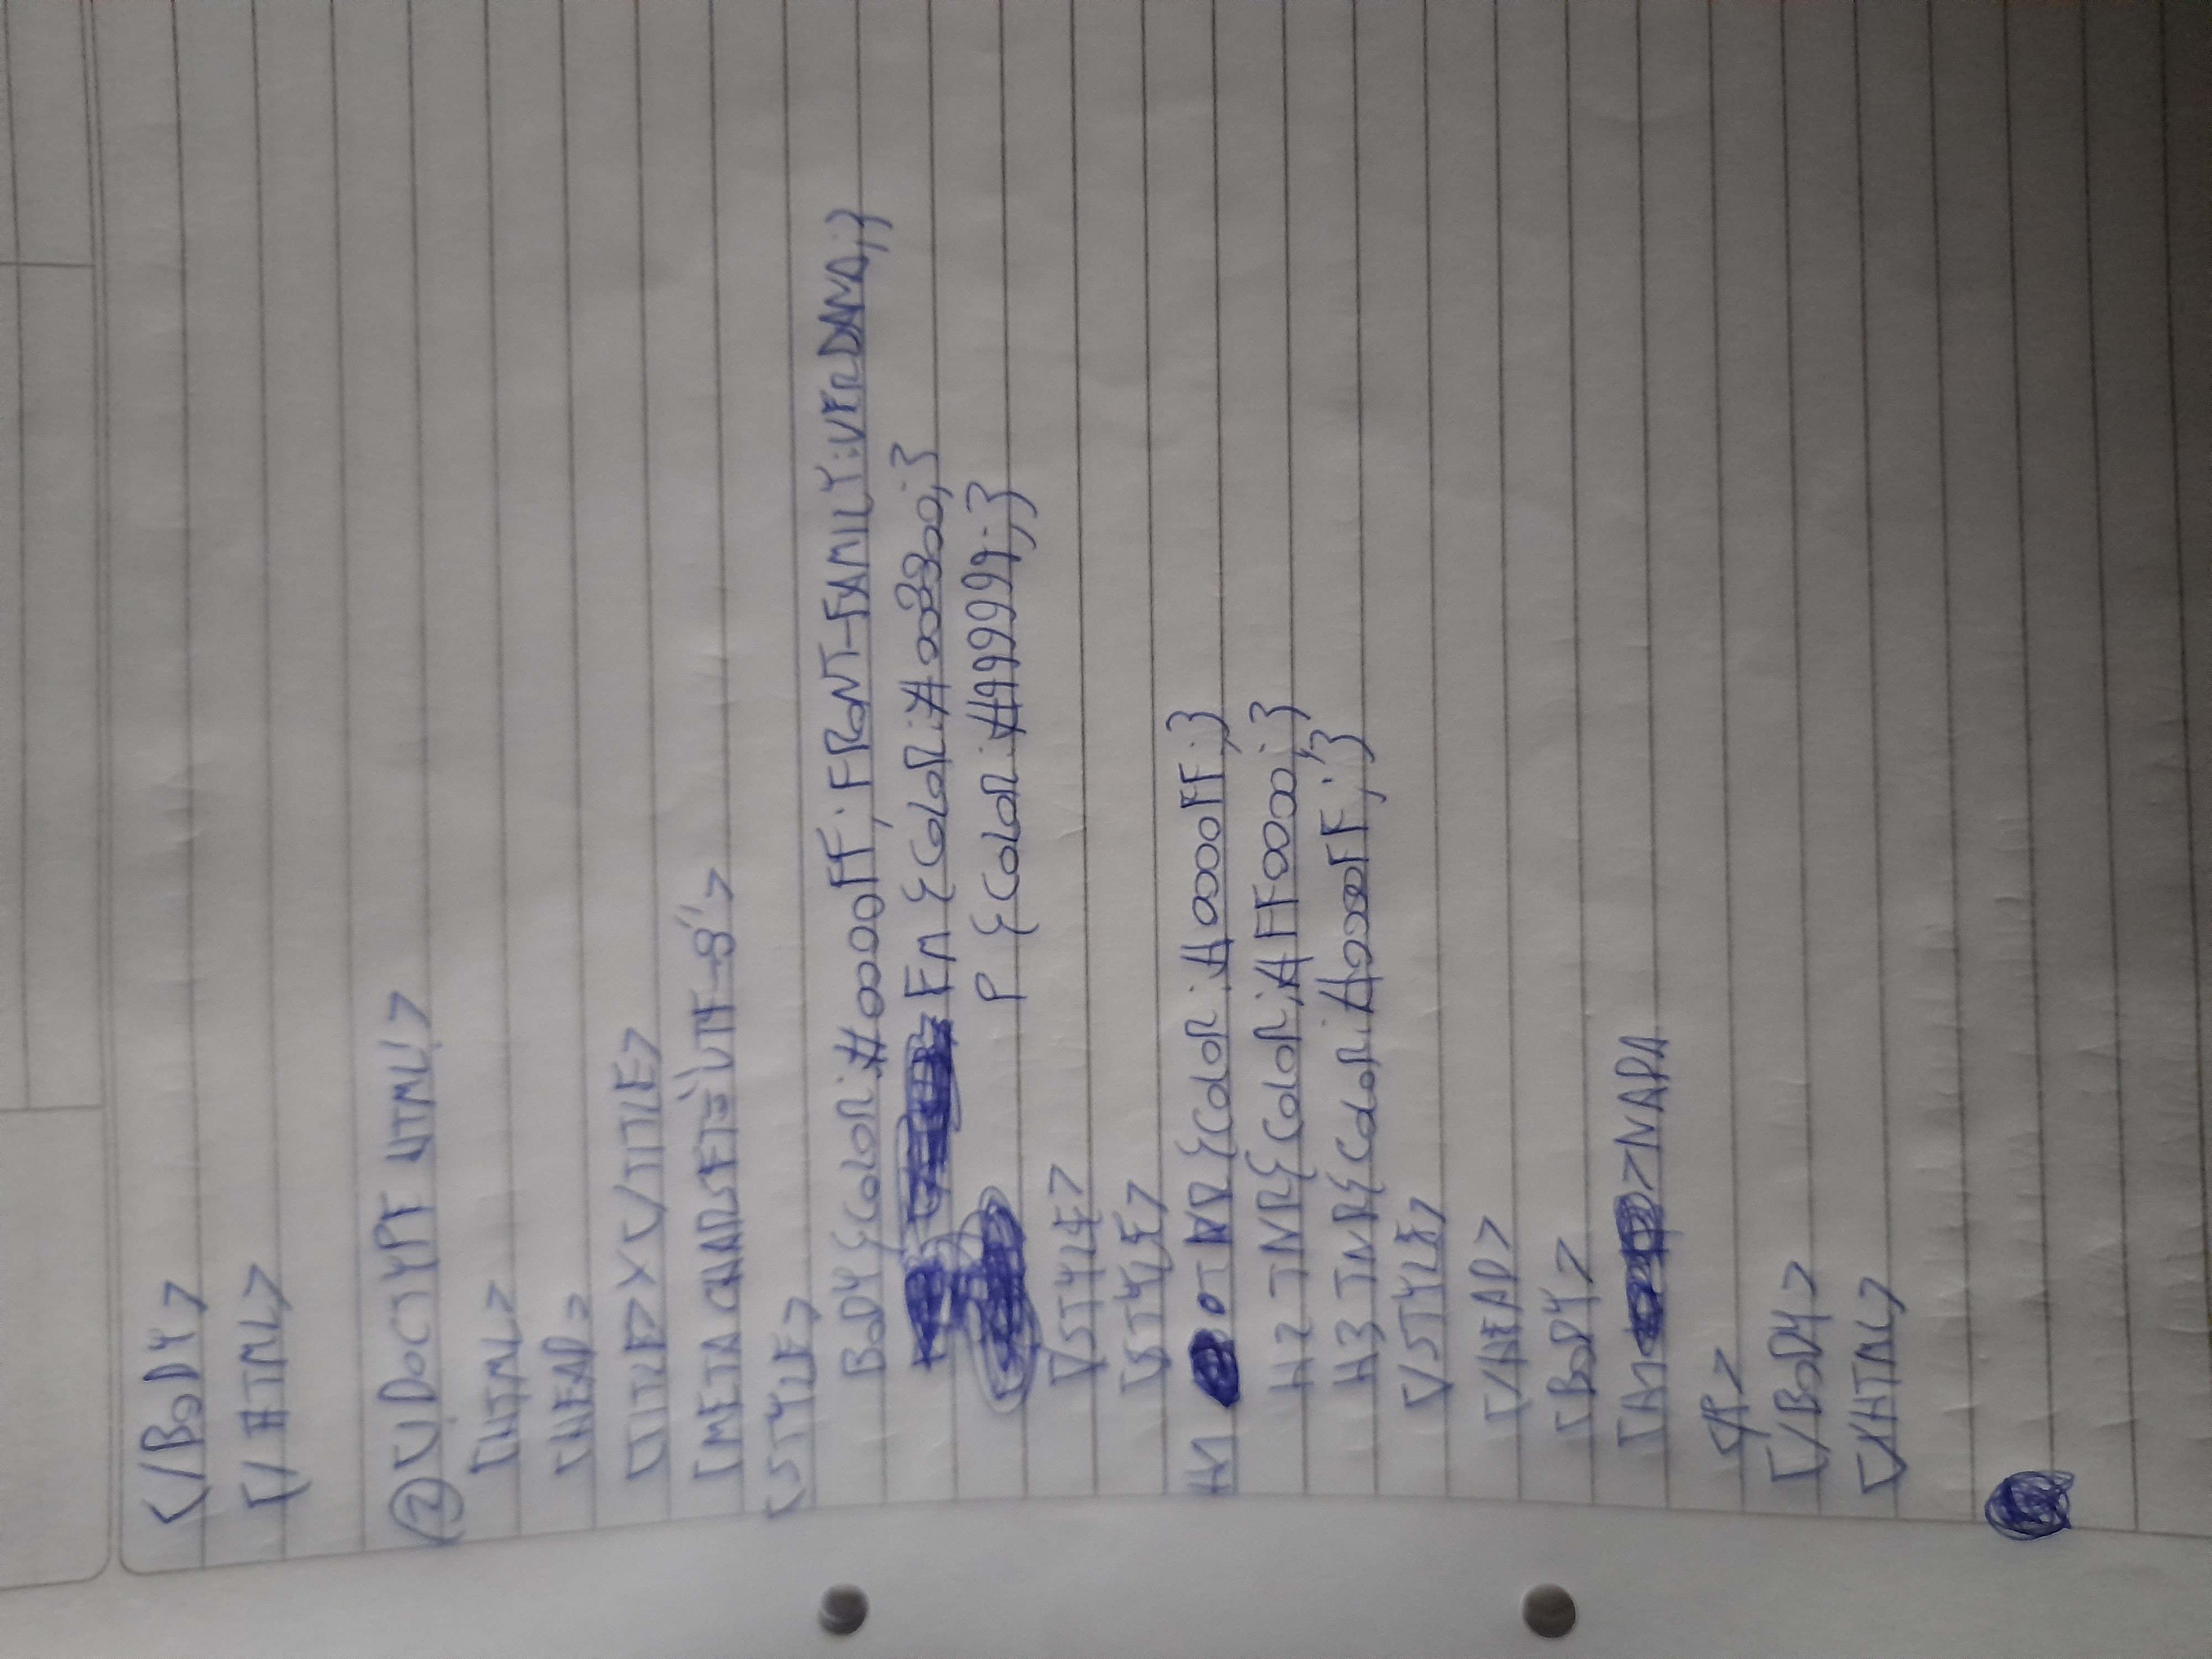 </BODY>
</HTML>
② <!DOCTYPE HTML!>
<HTML>
<HEAD>
<TITLE>X</TITLE>
<META CHARSET="UTF-8">
<STYLE>
BODY{COLOR:#0000FF; FRONT-FAMILY:VERDANA;}
EM {COLOR:#003300;}
P {COLOR:#999999;}
</STYLE>
<STYLE>
H1 TNR{COLOR:#0000FF;}
H2 TNR{COLOR:#FF0000;}
H3 TNR{COLOR:#0000FF;}
</STYLE>
</HEAD>
<BODY>
<H1>NADA
</BODY>
</HTML>